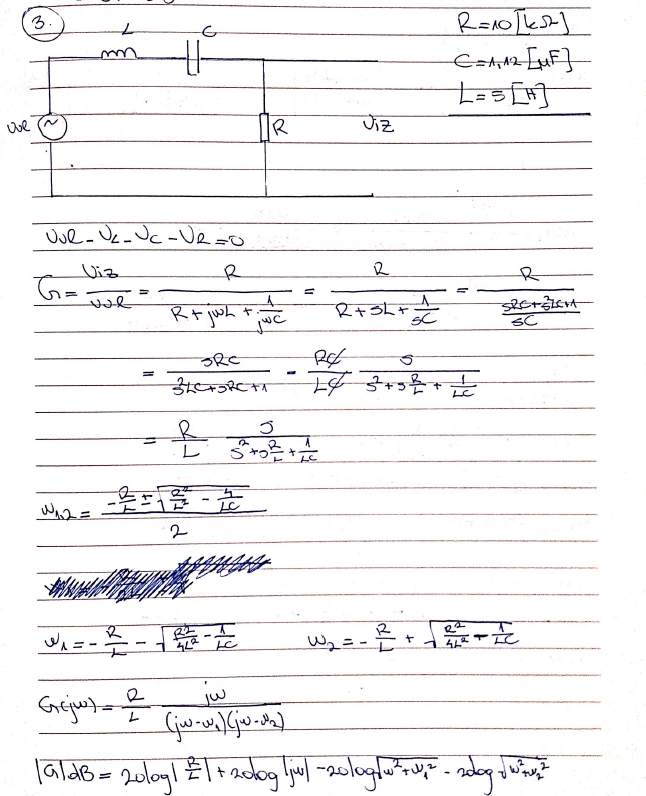 3.
L C
R=10 [kΩ]
C=1,12 [μF]
L=5 [H]
UUR ~ R UIZ
UUR - UL - UC - UR = 0
G = UIZ/UUR = R/(R+jωL+1/(jωC)) = R/(R+sL+1/(sC)) = R/((sRC+s²LC+1)/(sC))
= sRC/(s²LC+sRC+1) - RC/LC s/(s²+s R/L+1/(LC))
= R/L s/(s²+s R/L+1/(LC))
ω1,2 = (-R/L ± √(R²/L² - 4/(LC)))/2
ω1 = -R/L - √(R²/(4L²) - 1/(LC)) ω2 = -R/L + √(R²/(4L²) - 1/(LC))
G(jω) = R/L jω/((jω-ω1)(jω-ω2))
|G|dB = 20log|R/L| + 20log|jω| - 20log√(ω²+ω1²) - 20log√(ω²+ω2²)